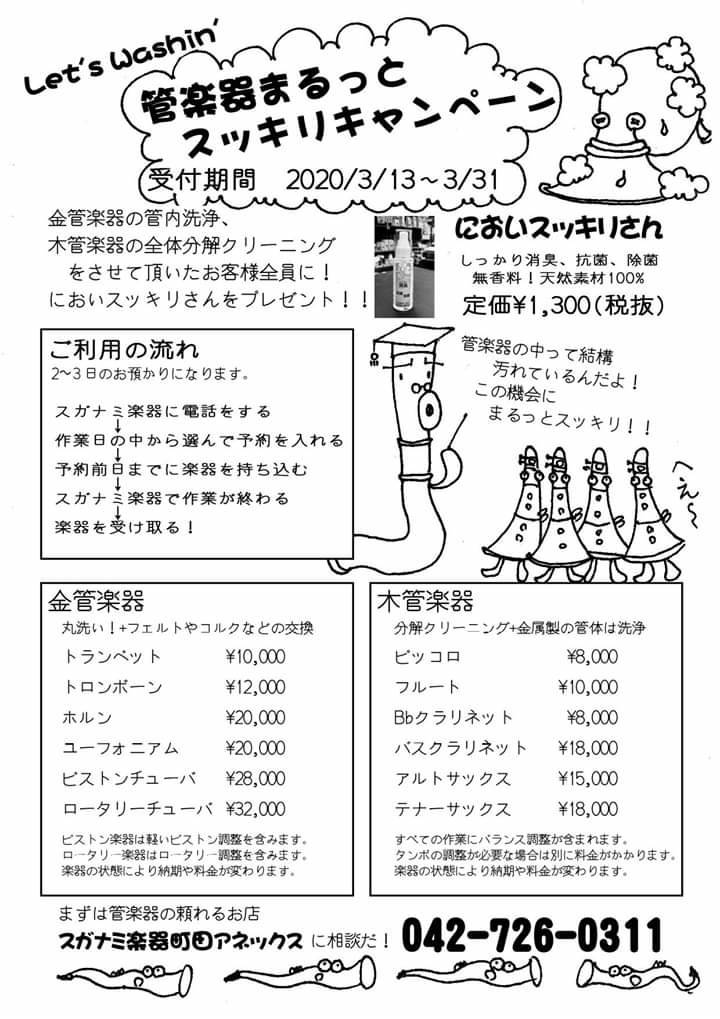 Let's Washin'
管楽器まるっと
スッキリキャンペーン
受付期間 2020/3/13～3/31
金管楽器の管内洗浄、
木管楽器の全体分解クリーニング
をさせて頂いたお客様全員に！
においスッキリさんをプレゼント！！
においスッキリさん
しっかり消臭、抗菌、除菌
無香料！天然素材100%
定価¥1,300(税抜)
ご利用の流れ
2～3日のお預かりになります。
スガナミ楽器に電話をする
↓
作業日の中から選んで予約を入れる
↓
予約前日までに楽器を持ち込む
↓
スガナミ楽器で作業が終わる
↓
楽器を受け取る！
管楽器の中って結構
汚れているんだよ！
この機会に
まるっとスッキリ！！
へぇ～
金管楽器
丸洗い！+フェルトやコルクなどの交換
トランペット ¥10,000
トロンボーン ¥12,000
ホルン ¥20,000
ユーフォニアム ¥20,000
ピストンチューバ ¥28,000
ロータリーチューバ ¥32,000
ピストン楽器は軽いピストン調整を含みます。
ロータリー楽器はロータリー調整を含みます。
楽器の状態により納期や料金が変わります。
木管楽器
分解クリーニング+金属製の管体は洗浄
ピッコロ ¥8,000
フルート ¥10,000
Bbクラリネット ¥8,000
バスクラリネット ¥18,000
アルトサックス ¥15,000
テナーサックス ¥18,000
すべての作業にバランス調整が含まれます。
タンポの調整が必要な場合は別に料金がかかります。
楽器の状態により納期や料金が変わります。
まずは管楽器の頼れるお店
スガナミ楽器町田アネックス に相談だ！ 042-726-0311